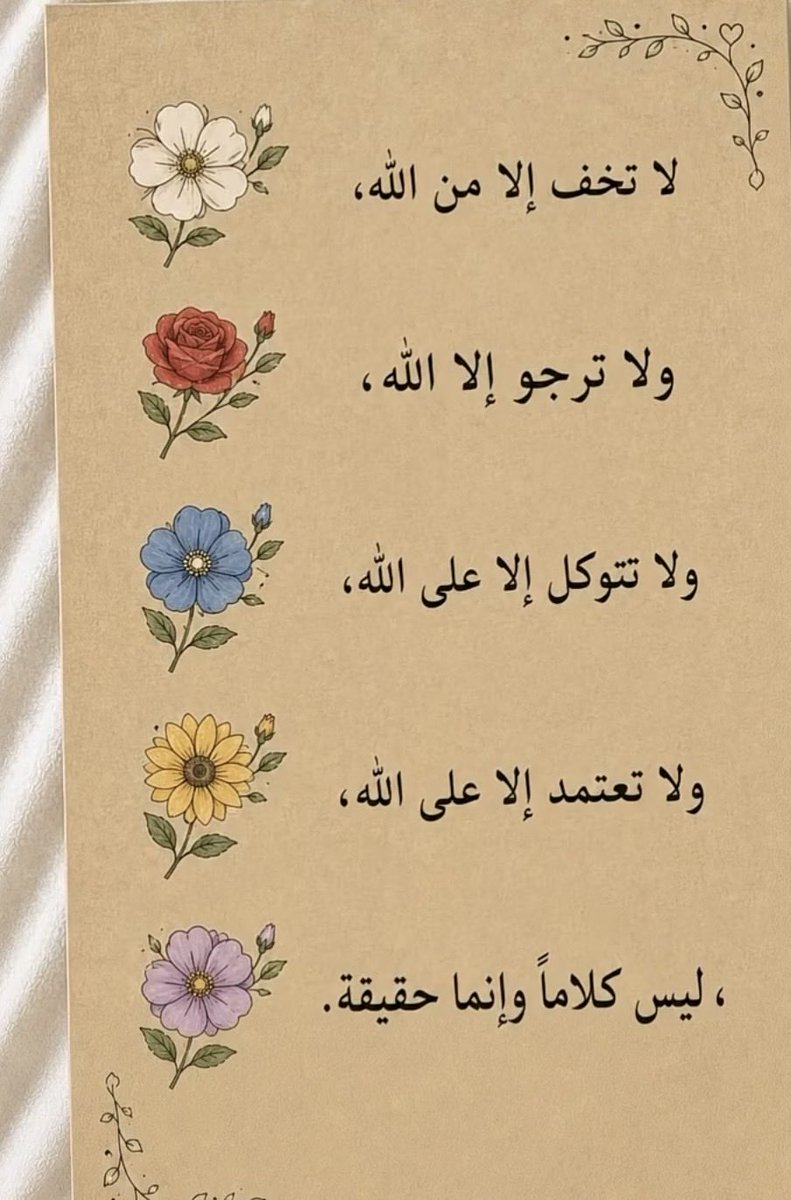 لا تخف إلا من الله،
ولا ترجو إلا الله،
ولا تتوكل إلا على الله،
ولا تعتمد إلا على الله،
، ليس كلاماً وإنما حقيقة.